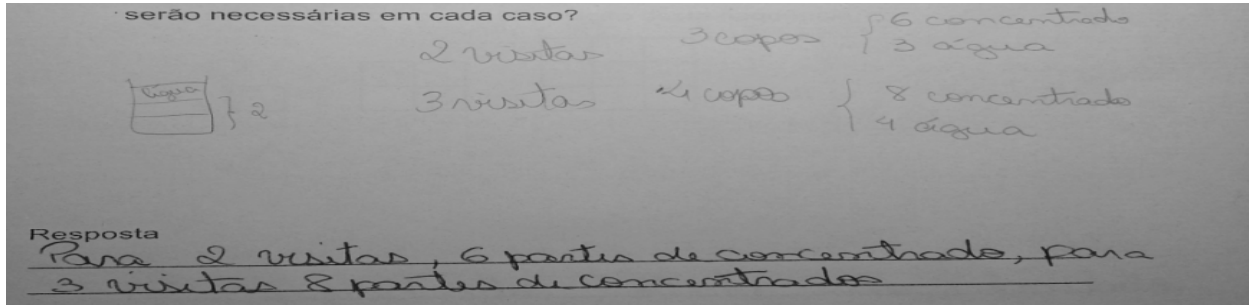 serão necessárias em cada caso?
2 visitas 3 copos { 6 concentrado
3 água
água } 2
3 visitas 4 copos { 8 concentrado
4 água
Resposta
Para 2 visitas, 6 partes de concentrado, para
3 visitas 8 partes de concentrados